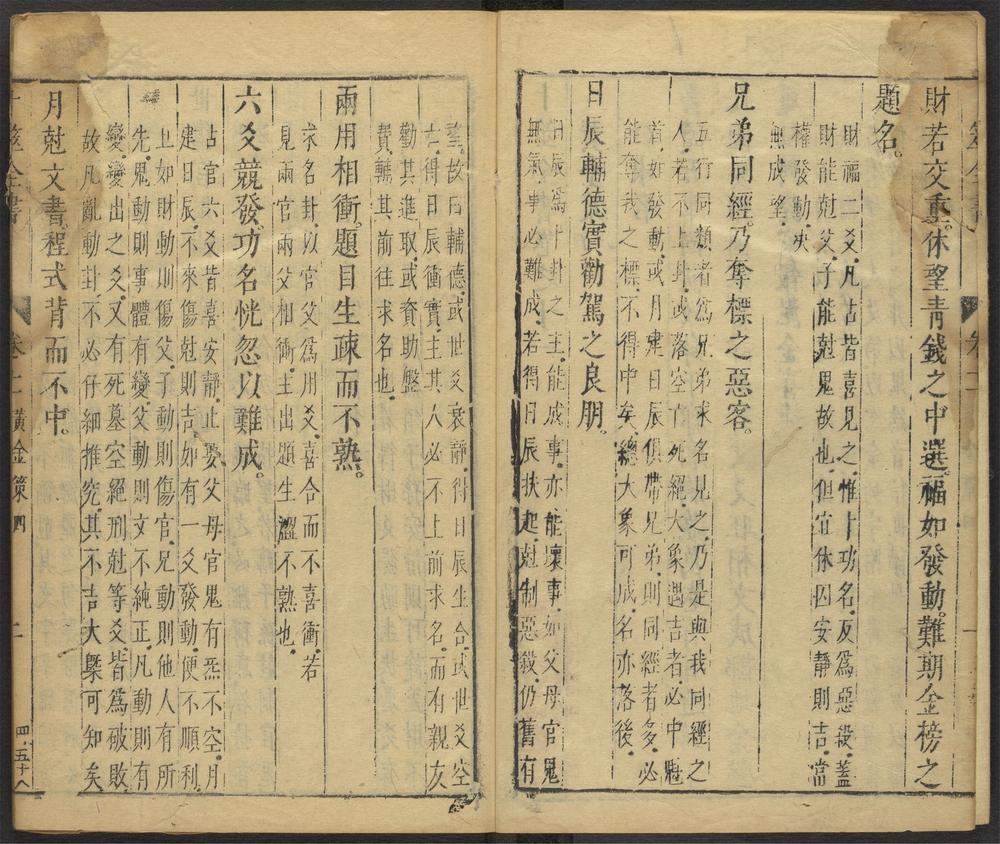 財若交重。休望靑錢之中選。福如發動。難期金榜之
題名。
財福二爻。凡占皆喜見之。惟卜功名。反為惡殺。蓋
財能尅父。子能尅鬼故也。但宜休囚安靜則吉。當
權發動。决
無成望。
兄弟同經。乃奪標之惡客。
五行同類者為兄弟。求名見之。乃是與我同經之
人。若不上卦或落空亡死絕。大象遇吉者必中魁
首。如發動或月建日辰俱帶兄弟。則同經者多。必
能奪我之標。不得中矣。總大象可成。名亦落後。
日辰輔德。實勸駕之良朋。
日辰為卜卦之主。能成事。亦能壞事。如父母官鬼
無氣。事必難成。若得日辰扶起。尅制惡殺。仍舊有
望。故曰輔德。或世爻衰靜。得日辰生合。或世爻空
亡。得日辰衝實。主其人必不上前求名。而有親友
勸其進取。或資助盤
費。輔其前往求名也。
兩用相衝。題目生疎而不熟。
求名卦。以官父為用爻。喜合而不喜衝。若
見兩官兩父相衝。主出題生澀不熟也。
六爻競發。功名恍忽以難成。
占官六爻皆喜安靜。止要父母官鬼有炁不空。月
建日辰。不來傷尅則吉。如有一爻發動。便不順利。
止如財動則傷父。子動則傷官。兄動則他人有所
先。鬼動則事體有變。父動則文不純正。凡動則有
變。變出之爻。又有死墓空絕刑尅等爻。皆為破敗。
故凡亂動卦。不必仔細推究。其不吉大槩可知矣
月尅文書。程式背而不中。
卷二 黃金策四
二
四。五十八